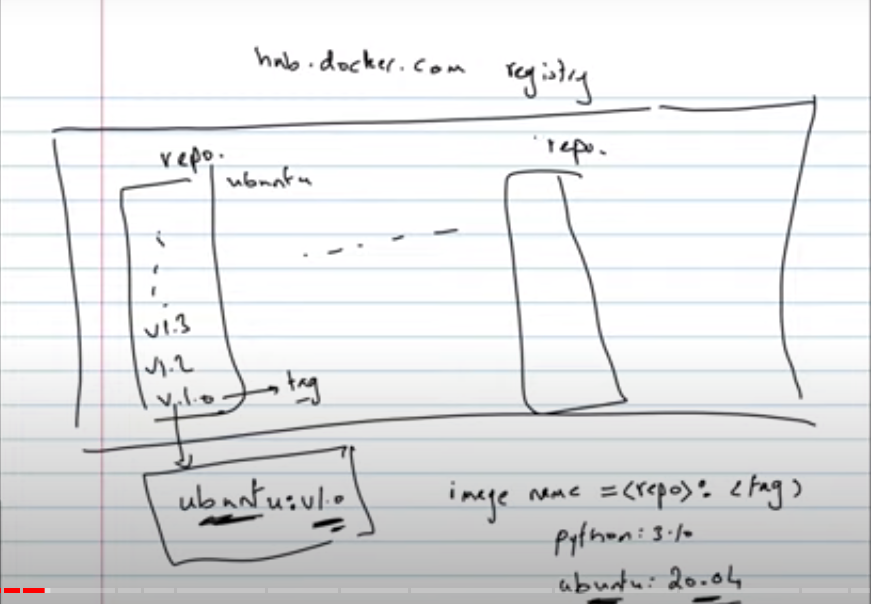 hub.docker.com registry
repo.
repo.
ubuntu
v1.3
v1.2
v.1.0
tag
ubuntu:v1.0
image name = <repo>: <tag>
python: 3.10
ubuntu: 20.04